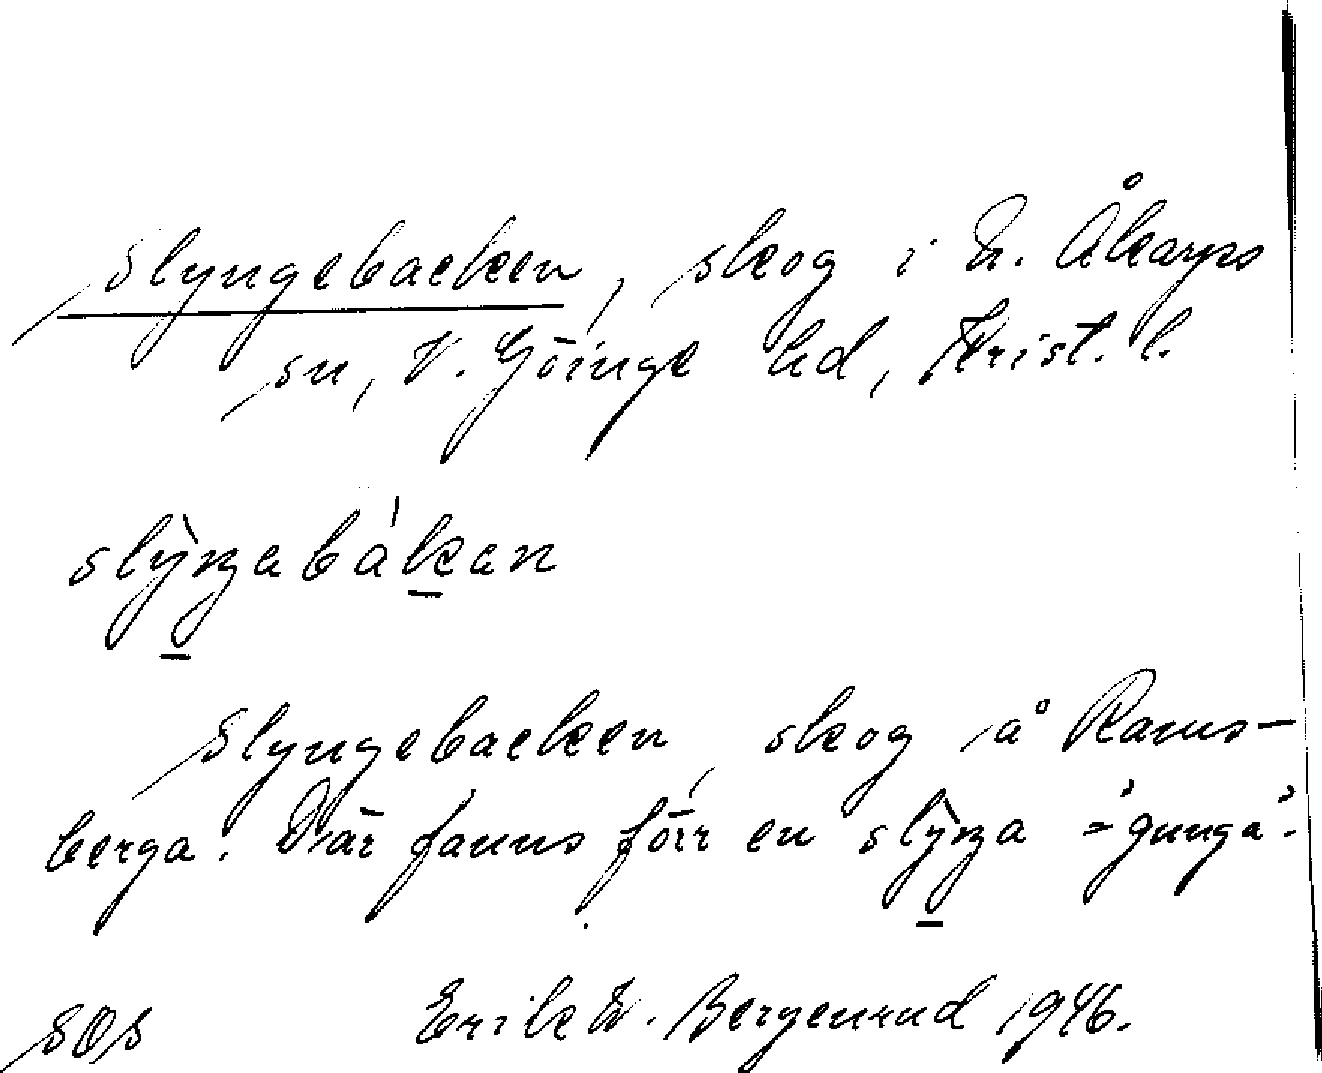 Slyngebacken, skog i N. Åkarps
sn, V. Göinge hd, Krist. l.
slỳŋabákan
Slyngebacken, skog å Rams-
berga. Där fanns förr en slỳŋa "gunga".
SOS Erik N. Bergenrud 1946.